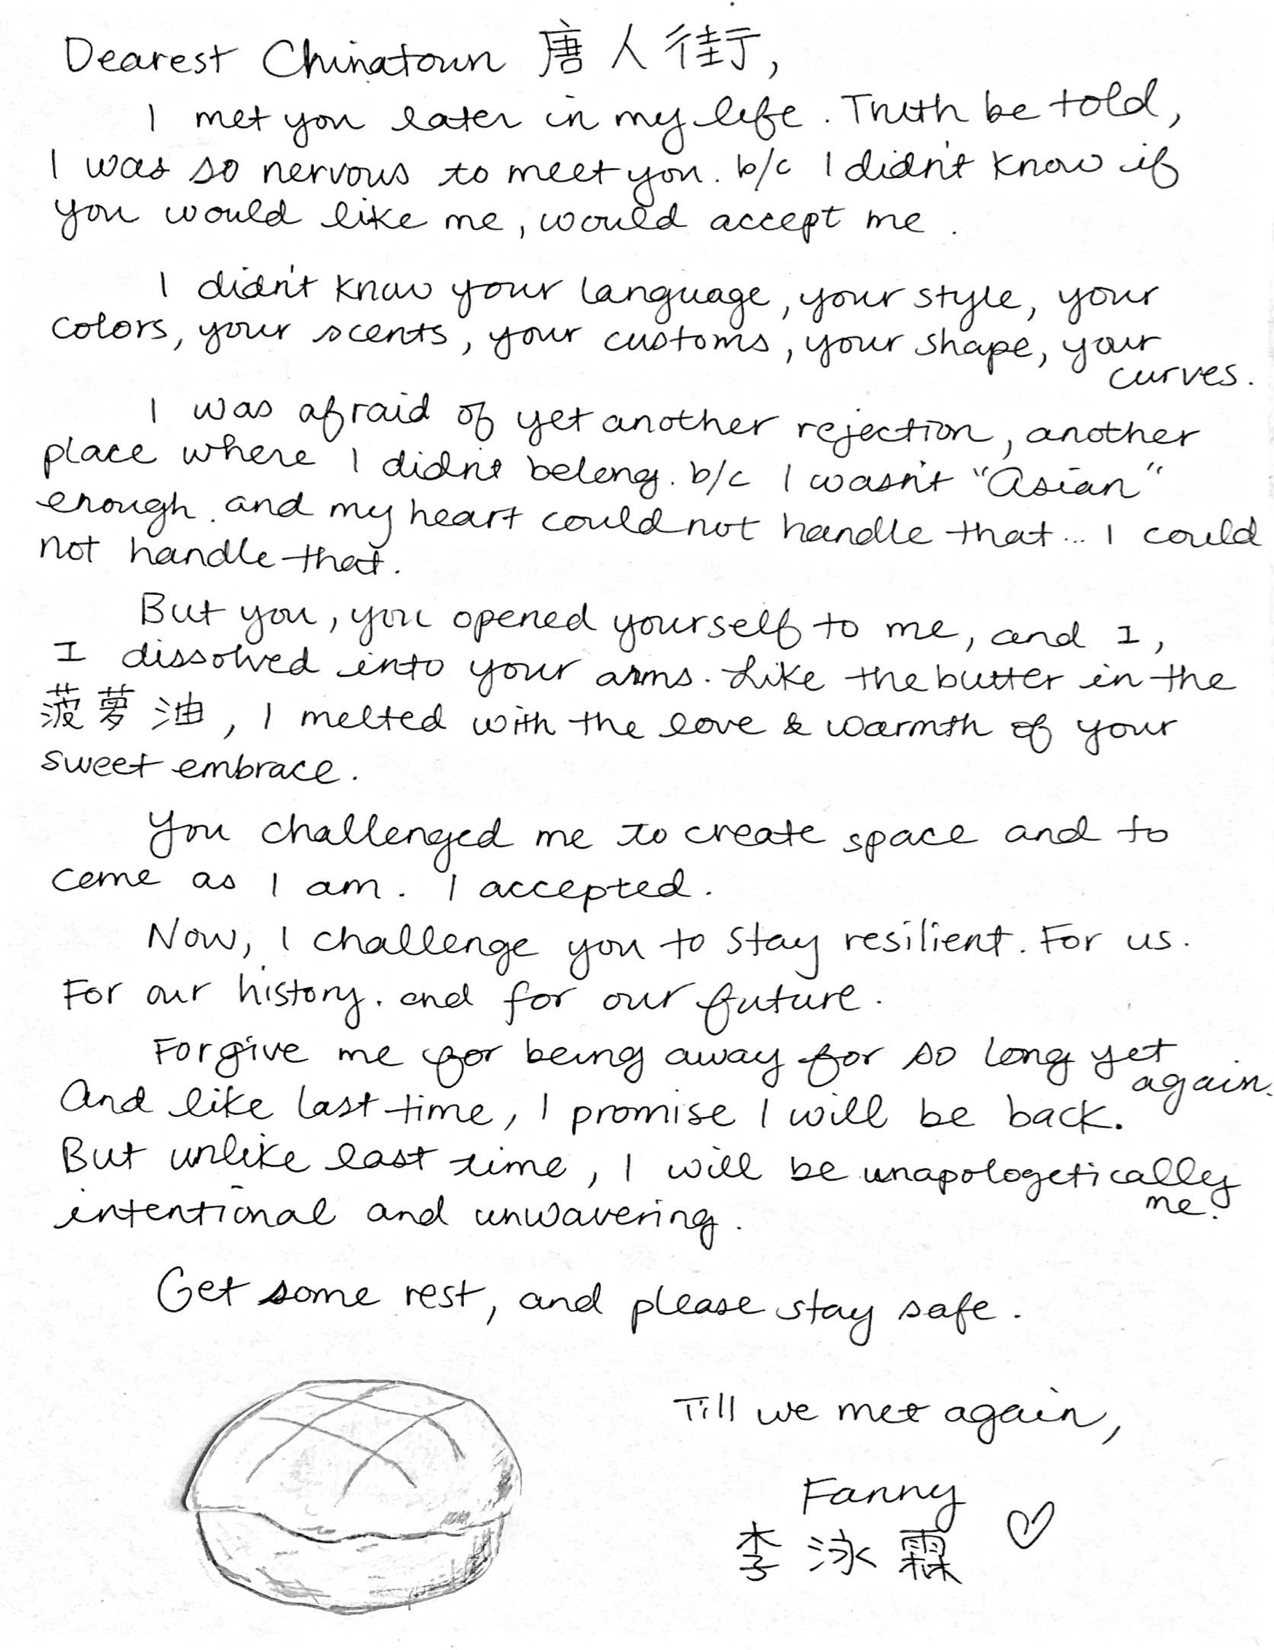 Dearest Chinatown 唐人街,
I met you later in my life. Truth be told,
I was so nervous to meet you. b/c I didn't know if
you would like me, would accept me.
I didn't know your language, your style, your
colors, your scents, your customs, your shape, your
curves.
I was afraid of yet another rejection, another
place where I didn't belong. b/c I wasn't "Asian"
enough. and my heart could not handle that... I could
not handle that.
But you, you opened yourself to me, and I,
I dissolved into your arms. Like the butter in the
菠萝油, I melted with the love & warmth of your
sweet embrace.
You challenged me to create space and to
come as I am. I accepted.
Now, I challenge you to stay resilient. For us.
For our history. and for our future.
Forgive me for being away for so long yet
again.
And like last time, I promise I will be back.
But unlike last time, I will be unapologetically
me.
intentional and unwavering.
Get some rest, and please stay safe.
Till we met again,
Fanny
李泳霖